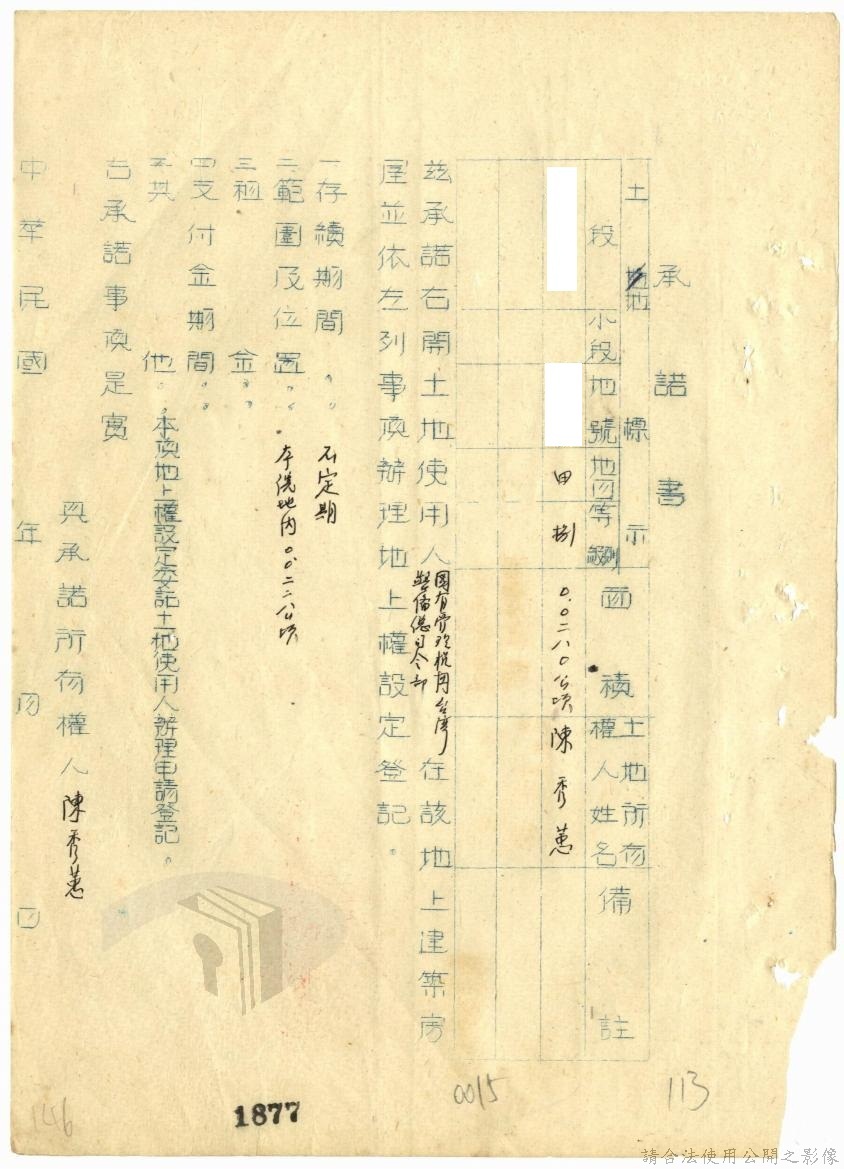 承諾書
土地標示
土地所有權人姓名
備註
段
小段
地號
地目
等則
面積
田
捌
0.0二八0公頃
陳秀蕙
茲承諾右開土地使用人國有管理機關台灣警備總司令部在該地上建築房
屋並依左列事項辦理地上權設定登記。
一存續期間。不定期
二範圍及位置。本筆地內0.0二二公頃
三租金
四支付金期間
五其他。本項地上權設定委託土地使用人辦理申請登記。
右承諾事項是實
具承諾所有權人陳秀蕙
中華民國年月日
113
0015
1877
146
請合法使用公開之影像